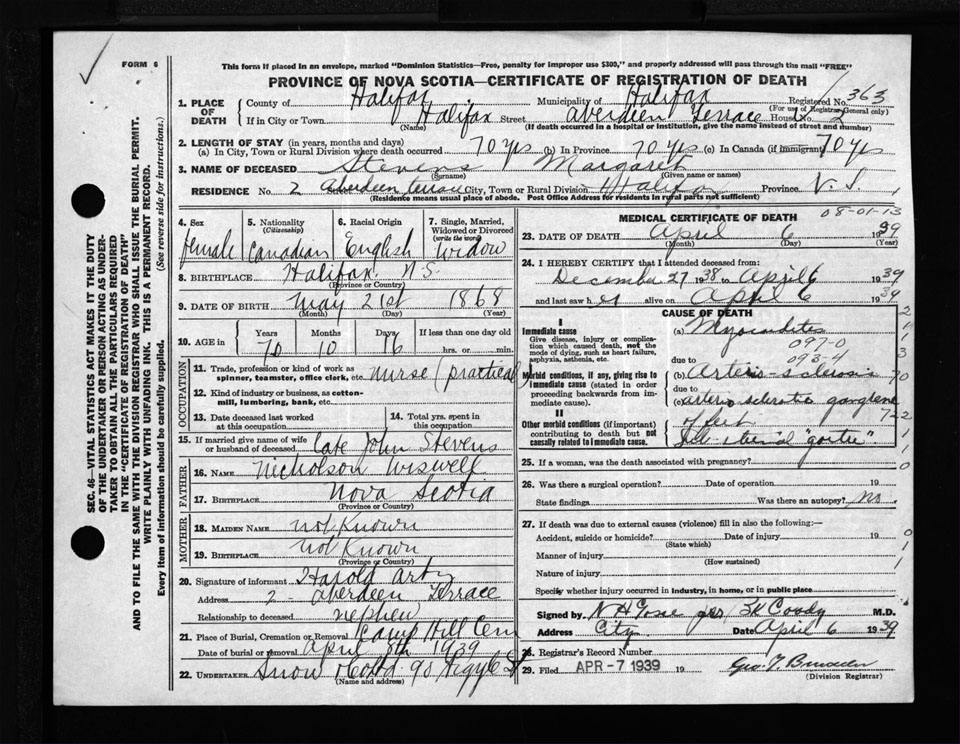 FORM 6
This form if placed in an envelope, marked "Dominion Statistics—Free, penalty for improper use $300," and properly addressed will pass through the mail "FREE"
PROVINCE OF NOVA SCOTIA—CERTIFICATE OF REGISTRATION OF DEATH
1. PLACE OF DEATH
County of Halifax Municipality of Halifax Registered No. 363
(For use of Registrar General only)
If in City or Town Halifax Street Aberdeen Terrace House No. 2
(Name) (If death occurred in a hospital or institution, give the name instead of street and number)
2. LENGTH OF STAY (in years, months and days)
(a) In City, Town or Rural Division where death occurred 70 yrs (b) In Province 70 yrs (c) In Canada (if immigrant) 70 yrs
3. NAME OF DECEASED Stevens Margaret
(Surname) (Given name or names)
RESIDENCE No. 2 Aberdeen Terrace City, Town or Rural Division Halifax Province N. S.
(Residence means usual place of abode. Post Office Address for residents in rural parts not sufficient)
4. Sex female
5. Nationality (Citizenship) Canadian
6. Racial Origin English
7. Single, Married, Widowed or Divorced (write the word) Widow
8. BIRTHPLACE Halifax N.S.
(Province or Country)
9. DATE OF BIRTH May 21st 1868
(Month) (Day) (Year)
10. AGE in Years 70 Months 10 Days 16 If less than one day old hrs. or min.
OCCUPATION
11. Trade, profession or kind of work as spinner, teamster, office clerk, etc. nurse (practical)
12. Kind of industry or business, as cotton-mill, lumbering, bank, etc.
13. Date deceased last worked at this occupation
14. Total yrs. spent in this occupation.
15. If married give name of wife or husband of deceased. late John Stevens
FATHER
16. NAME Nicholson Wiswell
17. BIRTHPLACE Nova Scotia
(Province or Country)
MOTHER
18. MAIDEN NAME not Known
19. BIRTHPLACE not Known
(Province or Country)
20. Signature of informant Harold
Address 2 - Aberdeen Terrace
Relationship to deceased nephew
21. Place of Burial, Cremation or Removal Camp Hill Cem
Date of burial or removal April 8th 1939
22. UNDERTAKER Snow & Co Ltd 90 Argyle St
(Name and address)
MEDICAL CERTIFICATE OF DEATH
08-01-13
23. DATE OF DEATH April 6 1939
(Month) (Day) (Year)
24. I HEREBY CERTIFY that I attended deceased from:
December 27 1938 to April 6 1939
and last saw her alive on April 6 1939
CAUSE OF DEATH
I
Immediate cause
Give disease, injury or complication which caused death, not the mode of dying, such as heart failure, asphyxia, asthenia, etc.
(a) Myocarditis
097-0
due to 093-4
Morbid conditions, if any, giving rise to immediate cause (stated in order proceeding backwards from immediate cause).
(b) Arterio-sclerosis
due to
(c) arterio sclerotic gangrene
of feet
II
Other morbid conditions (if important) contributing to death but not causally related to immediate cause.
25. If a woman, was the death associated with pregnancy?
26. Was there a surgical operation? Date of operation 19
State findings Was there an autopsy? no.
27. If death was due to external causes (violence) fill in also the following:—
Accident, suicide or homicide? Date of injury 19
(State which)
Manner of injury
(How sustained)
Nature of injury
Specify whether injury occurred in industry, in home, or in public place
Signed by N H Gosse per M.D.
Address City Date April 6 1939
28. Registrar's Record Number
29. Filed APR - 7 1939 19
(Division Registrar)
SEC. 46—VITAL STATISTICS ACT MAKES IT THE DUTY
OF THE UNDERTAKER OR PERSON ACTING AS UNDER-
TAKER TO OBTAIN ALL THE PARTICULARS REQUIRED
IN THE "CERTIFICATE OF REGISTRATION OF DEATH"
AND TO FILE THE SAME WITH THE DIVISION REGISTRAR WHO SHALL ISSUE THE BURIAL PERMIT.
WRITE PLAINLY WITH UNFADING INK. THIS IS A PERMANENT RECORD.
Every item of information should be carefully supplied. (See reverse side for instructions.)